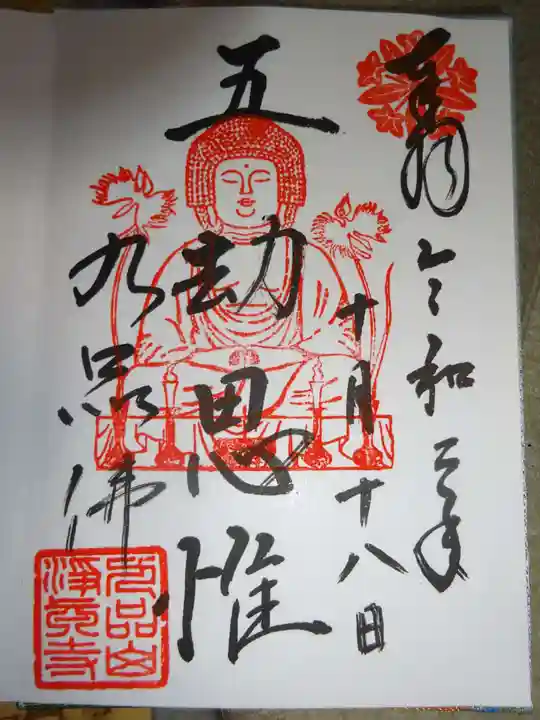 奉拝
令和三年
十月十八日
五劫思惟
九品佛
九品山
淨眞寺